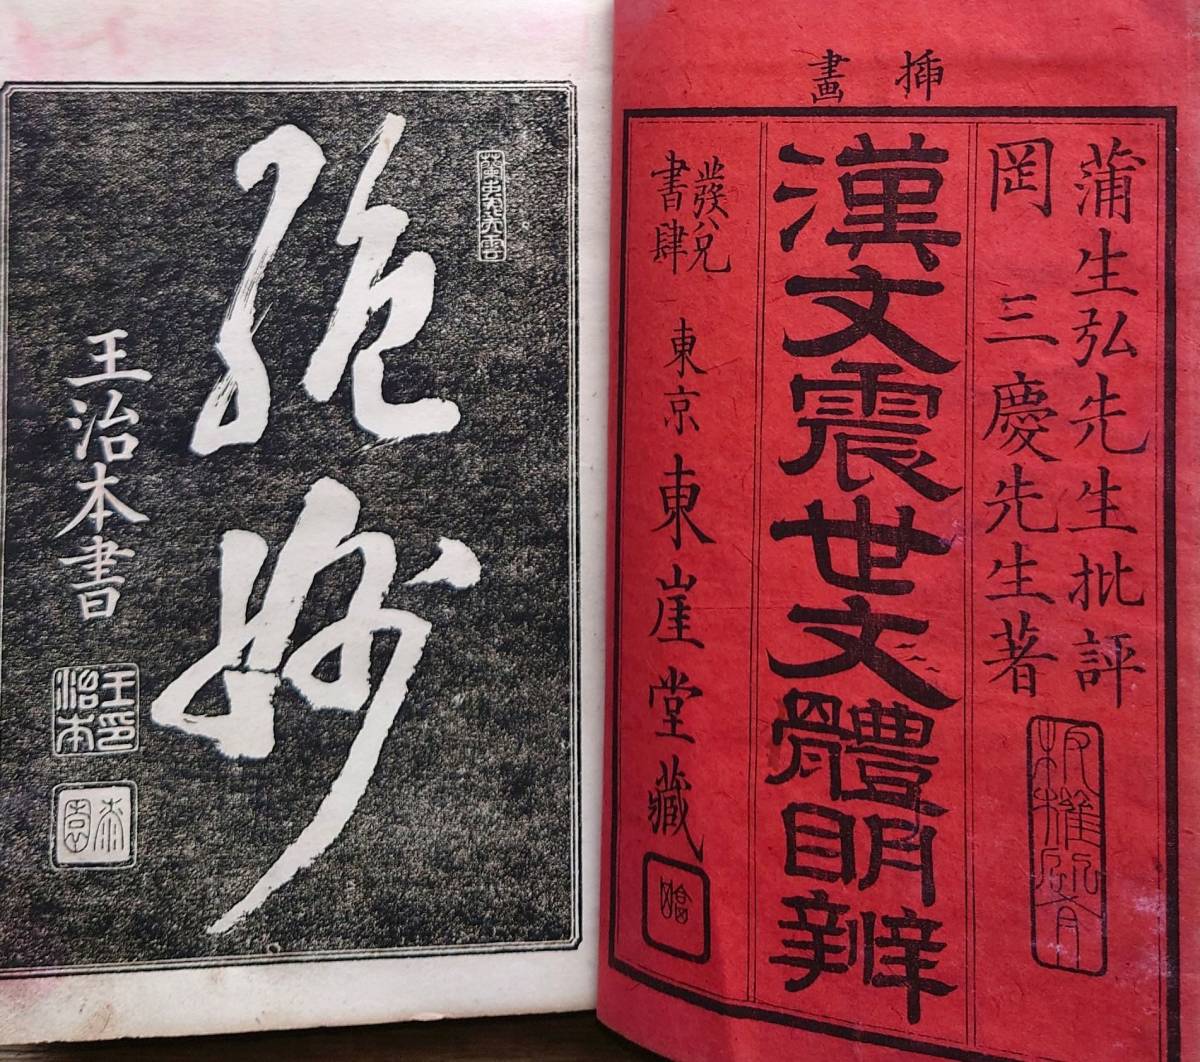 挿畫
蒲生弘先生批評
岡三慶先生著
板權所有
漢文震世文體明辨
發兌
書肆
東京東崖堂藏
絶妙
王治本書
王治本印
桼園